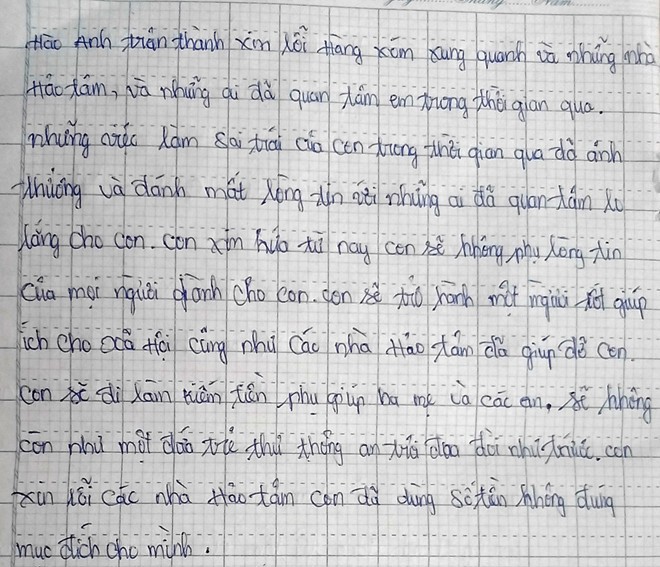 Hào Anh trân thành xin lỗi Hàng xóm xung quanh và những nhà
Hảo tâm, và những ai đã quan tâm em trong thời gian qua.
những việc làm sai trái của con trong thời gian qua đã ảnh
Hưởng và đánh mất lòng tin với những ai đã quan tâm lo
lắng cho con. con xin hứa từ nay con sẽ không phụ lòng tin
của mọi người giành cho con. con sẽ trở hành một người tốt giúp
ích cho xã Hội cũng như các nhà Hảo tâm đã giúp đỡ con.
con sẽ đi làm kiếm tiền phụ giúp ba mẹ và các em, sẽ không
còn như một đứa trẻ thứ thống ăn trôi đua đòi như trước. con
xin lỗi các nhà Hảo tâm con đã dùng số tiền không đúng
mục đích cho mình.